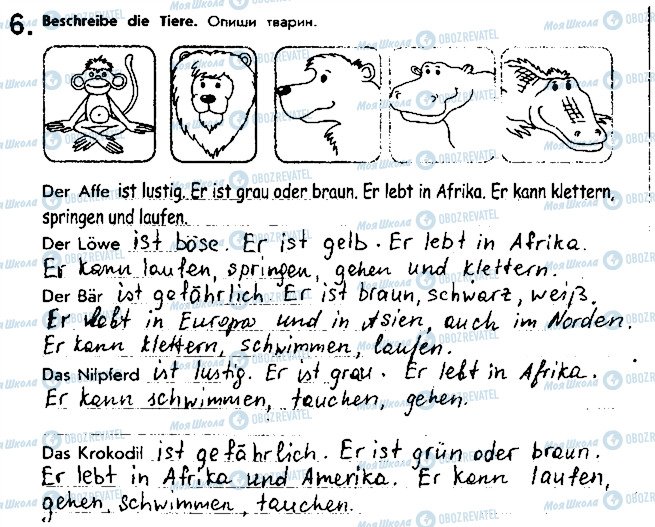 6. Beschreibe die Tiere. Опиши тварин.
Der Affe ist lustig. Er ist grau oder braun. Er lebt in Afrika. Er kann klettern,
springen und laufen.
Der Löwe ist böse. Er ist gelb. Er lebt in Afrika.
Er kann laufen, springen, gehen und klettern.
Der Bär ist gefährlich Er ist braun, schwarz, weiß.
Er lebt in Europa und in Asien, auch im Norden.
Er kann klettern, schwimmen, laufen.
Das Nilpferd ist lustig. Er ist grau. Er lebt in Afrika.
Er kann schwimmen, tauchen, gehen.
Das Krokodil ist gefährlich. Er ist grün oder braun.
Er lebt in Afrika und Amerika. Er kann laufen,
gehen, schwimmen, tauchen.